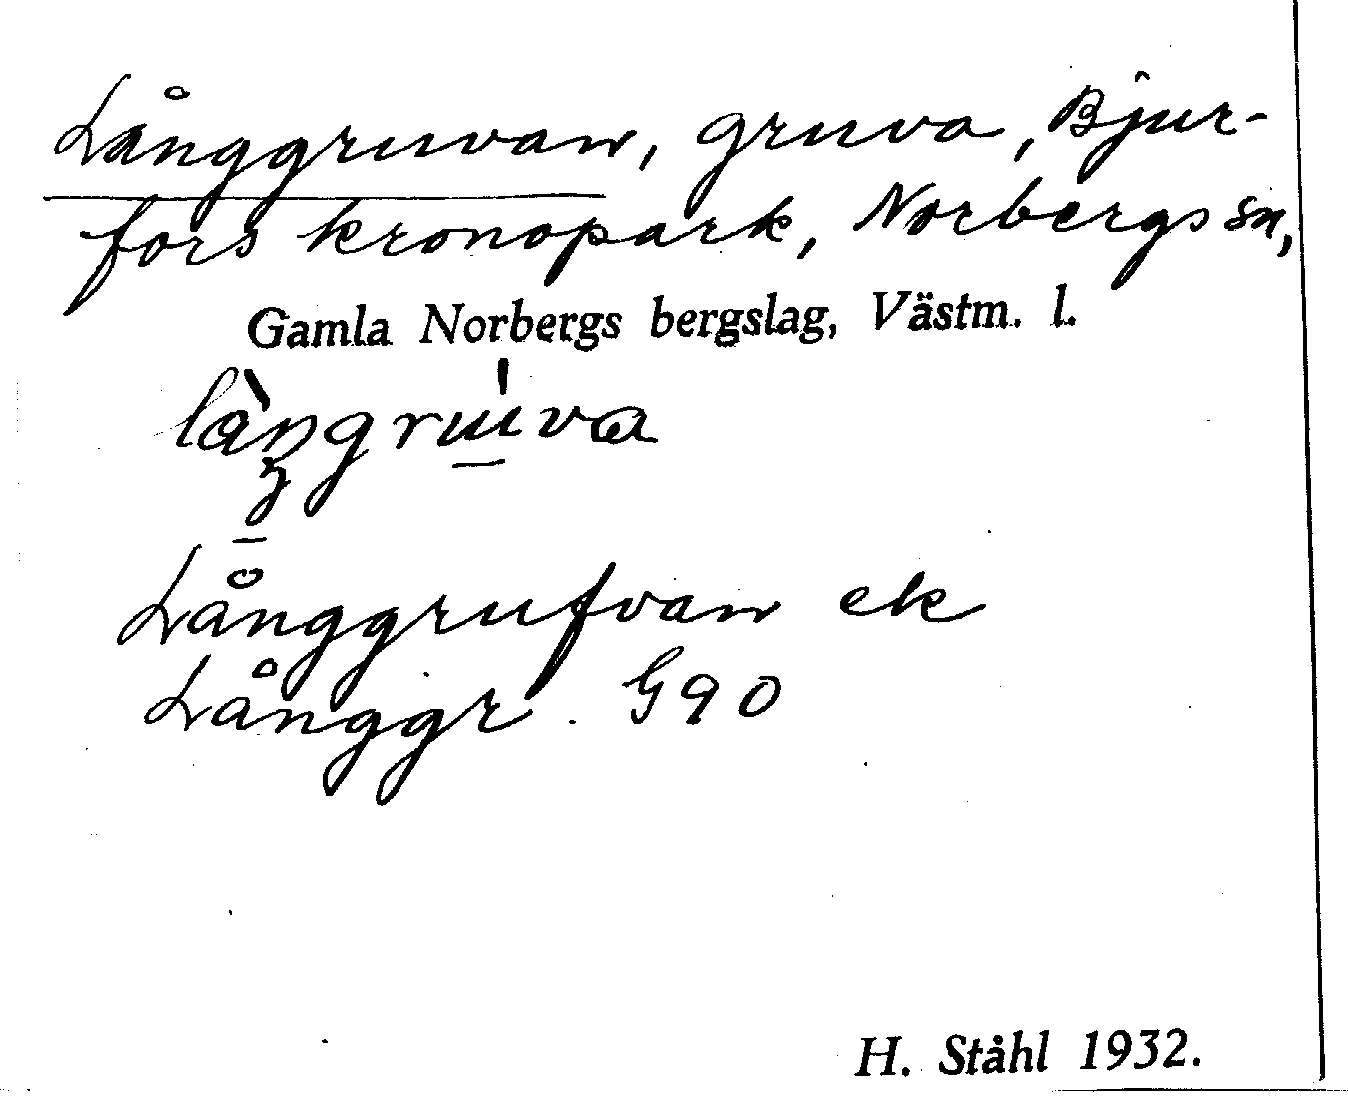 Långgruvan, gruva, Bjur-
fors kronopark, Norbergs sn,
Gamla Norbergs bergslag, Västm. l.
Långgrufvan ek
Långgr. G90
H. Ståhl 1932.